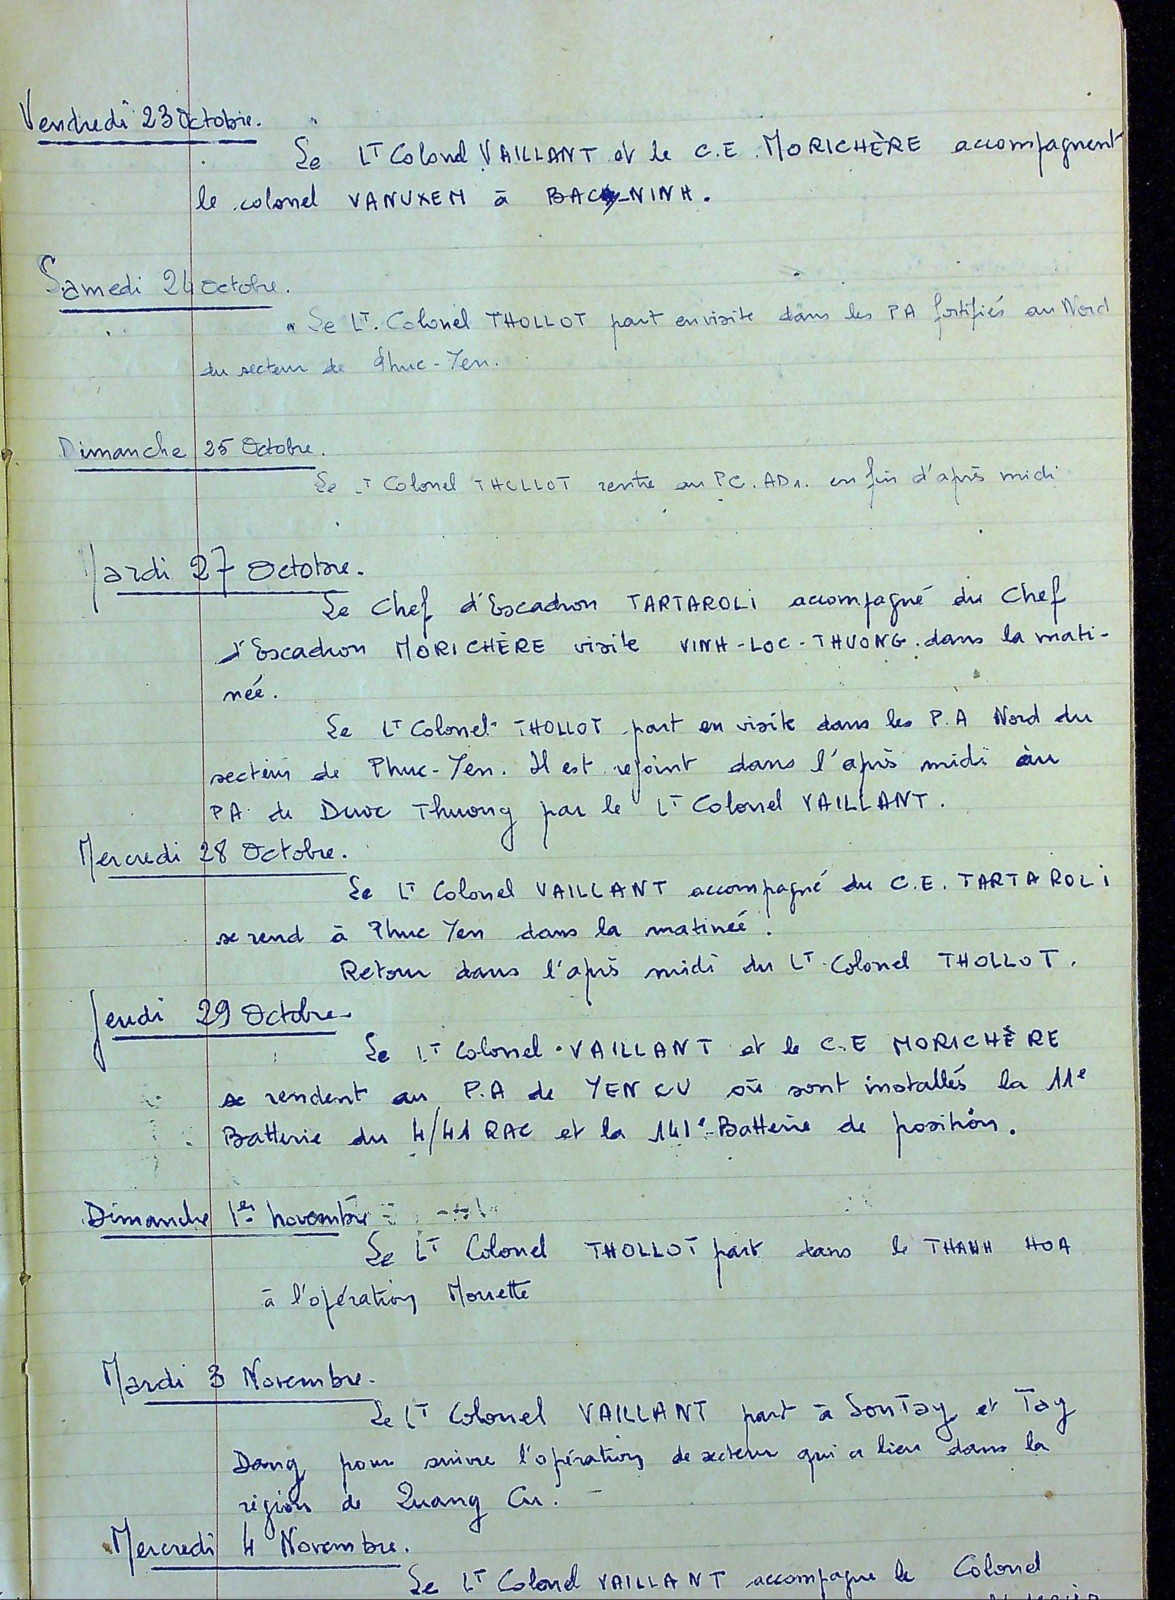 Vendredi 23 Octobre.
Le Lt Colonel VAILLANT et le C.E. MORICHÈRE accompagnent
le colonel VANUXEM à BAC-NINH.
Samedi 24 Octobre.
Le Lt. Colonel THOLLOT part en visite dans les PA fortifiés au Nord
du secteur de Phuc-Yen.
Dimanche 25 Octobre.
Le Lt Colonel THOLLOT rentre au PC. AD1. en fin d'après midi
Mardi 27 Octobre.
Le Chef d'Escadron TARTAROLI accompagné du Chef
d'Escadron MORICHÈRE visite VINH-LOC-THUONG dans la mati-
née.
Le Lt Colonel THOLLOT part en visite dans les P.A Nord du
secteur de Phuc-Yen. Il est rejoint dans l'après midi au
PA de Duoc Thuong par le Lt Colonel VAILLANT.
Mercredi 28 Octobre.
Le Lt Colonel VAILLANT accompagné du C.E. TARTAROLI
se rend à Phuc Yen dans la matinée.
Retour dans l'après midi du Lt Colonel THOLLOT.
Jeudi 29 Octobre.
Le Lt Colonel VAILLANT et le C.E MORICHÈRE
se rendent au P.A de YEN CU où sont installés la 11e
Batterie du 4/41 RAC et la 141e Batterie de position.
Dimanche 1er novembre
Le Lt Colonel THOLLOT part dans le THANH HOA
à l'opération Mouette
Mardi 3 Novembre.
Le Lt Colonel VAILLANT part à Son Tay et Tay
Dang pour suivre l'opération de secteur qui a lieu dans la
région de Quang Cu.
Mercredi 4 Novembre.
Le Lt Colonel VAILLANT accompagne le Colonel